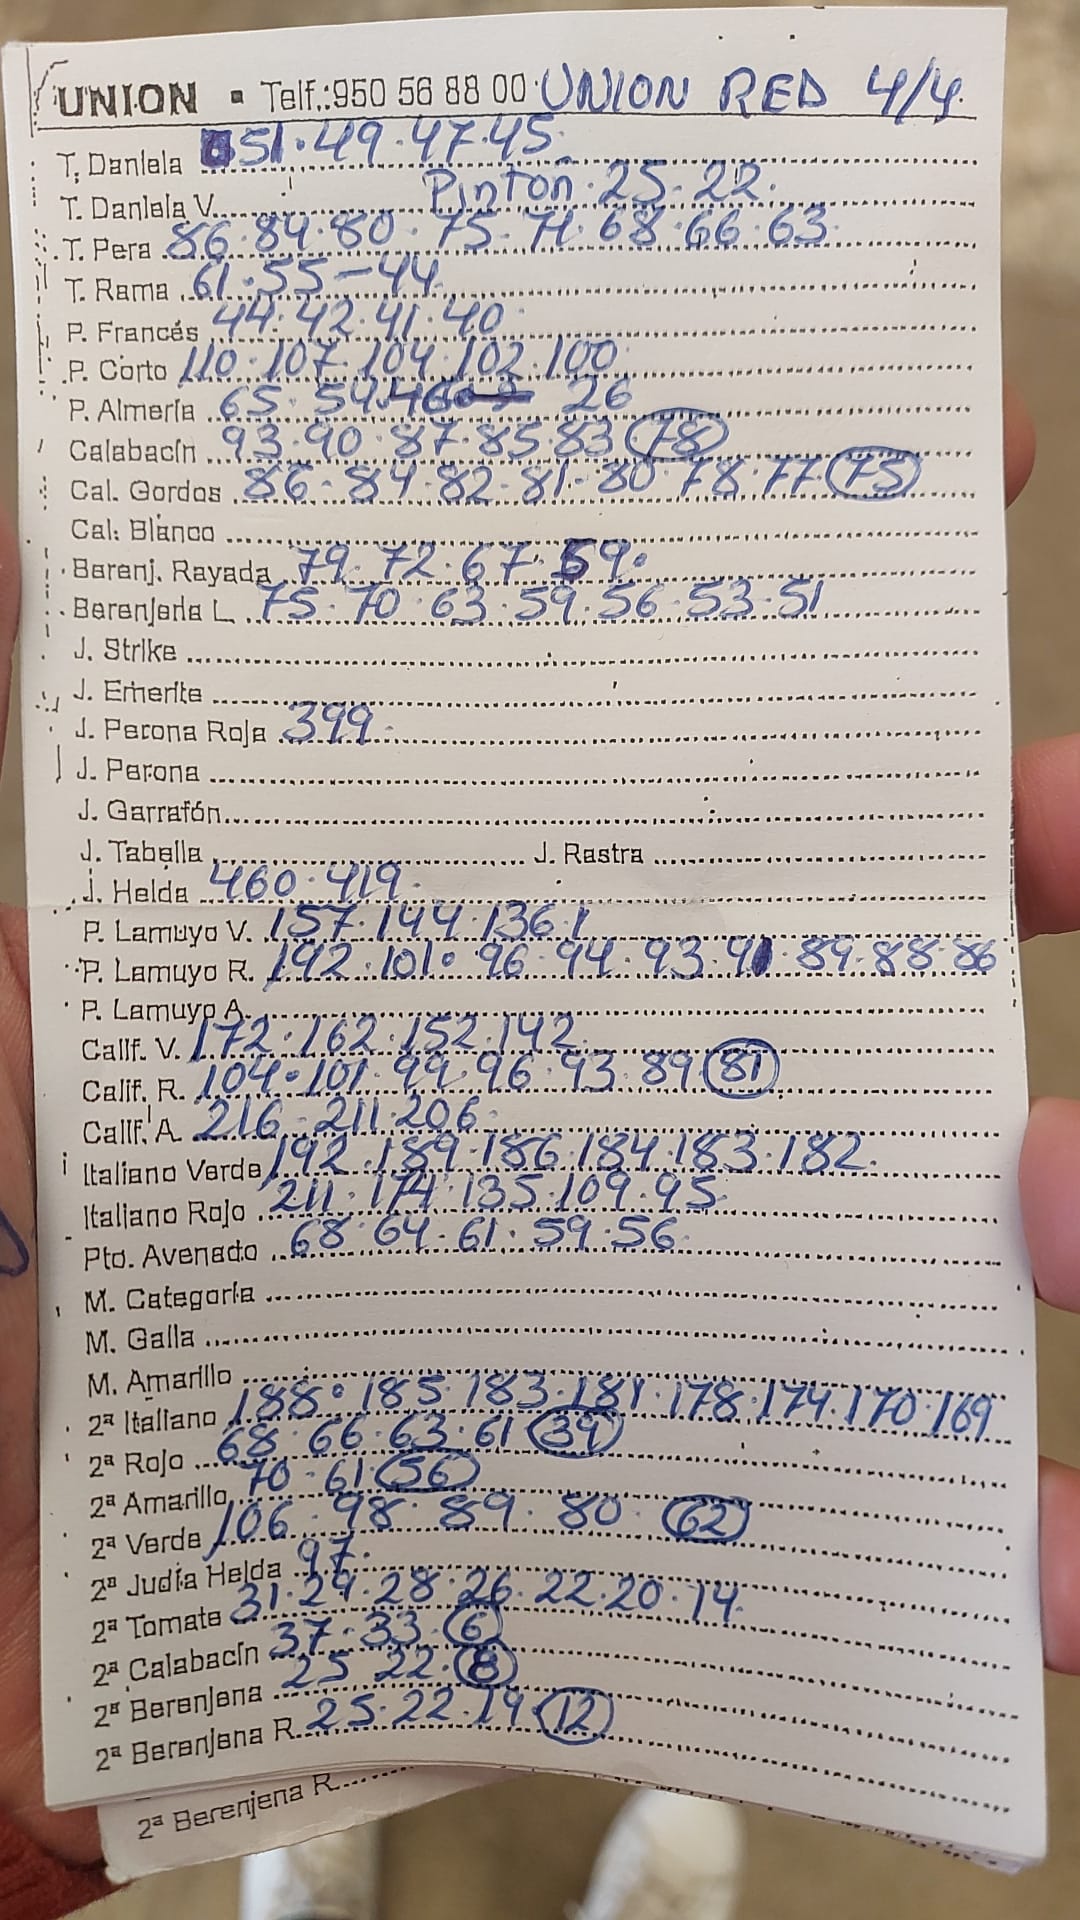 UNION ▪ Telf.:950 56 88 00 UNION RED 4/4.
T. Daniela 51.49.47.45.
T. Daniela V. Pinton.25.22.
T. Pera 86.84.80.75.71.68.66.63.
T. Rama 61.55-44.
P. Francés 44.42.41.40.
P. Corto 110.107.104.102.100.
P. Almería 65.54.46 26
Calabacín 93.90.87.85.83 (78)
Cal. Gordos 86.84.82.81.80.78.77 (75)
Cal. Blanco
Berenj. Rayada 79.72.67.59.
Berenjena L. 75.70.63.59.56.53.51
J. Strike
J. Emerite
J. Perona Roja 399.
J. Perona
J. Garrafón
J. Tabella J. Rastra
J. Helda 460.419.
P. Lamuyo V. 157.144.136.1
P. Lamuyo R. 192.101.96.94.93.91.89.88.86
P. Lamuyo A.
Calif. V. 172.162.152.142.
Calif. R. 104.101.99.96.93.89 (81)
Calif. A. 216.211.206.
Italiano Verde 192.189.186.184.183.182.
Italiano Rojo 211.174.135.109.95.
Pto. Avenado 68.64.61.59.56.
M. Categoría
M. Galia
M. Amarillo
2ª Italiano 188.185.183.181.178.174.170.169
2ª Rojo 68.66.63.61 (39)
2ª Amarillo 70.61.(56)
2ª Verde 106.98.89.80.(62)
2ª Judía Helda 97.
2ª Tomate 31.29.28.26.22.20.14.
2ª Calabacín 37.33.(6)
2ª Berenjena 25 22.(8)
2ª Berenjena R. 25.22.19.(12)
2ª Berenjena R.